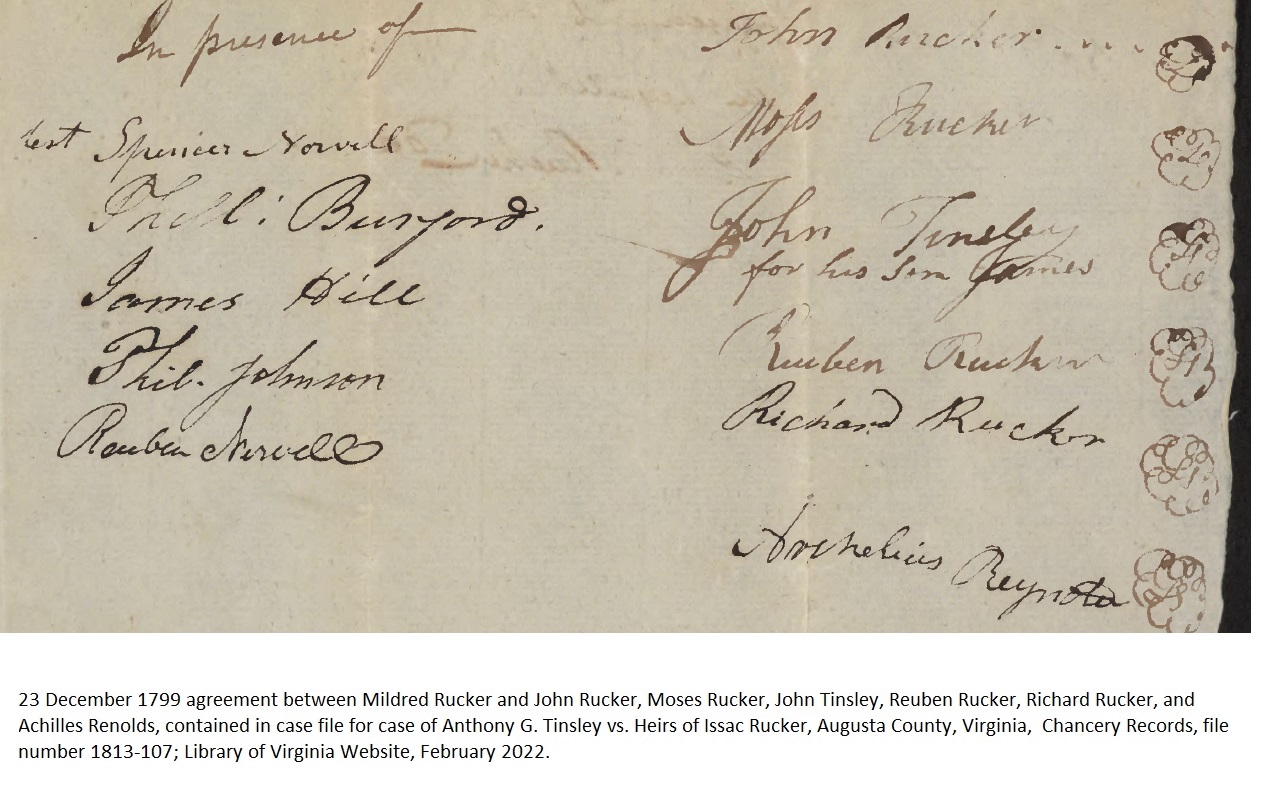 In presence of
test Spencer Norvell
Phill: Burford.
James Hill
Phil. Johnson
Reuben Norvell
John Rucker
Moses Rucker
John Tinsley
for his son James
Reuben Rucker
Richard Rucker
Archelius Reynolds
23 December 1799 agreement between Mildred Rucker and John Rucker, Moses Rucker, John Tinsley, Reuben Rucker, Richard Rucker, and
Achilles Renolds, contained in case file for case of Anthony G. Tinsley vs. Heirs of Issac Rucker, Augusta County, Virginia,  Chancery Records, file
number 1813-107; Library of Virginia Website, February 2022.